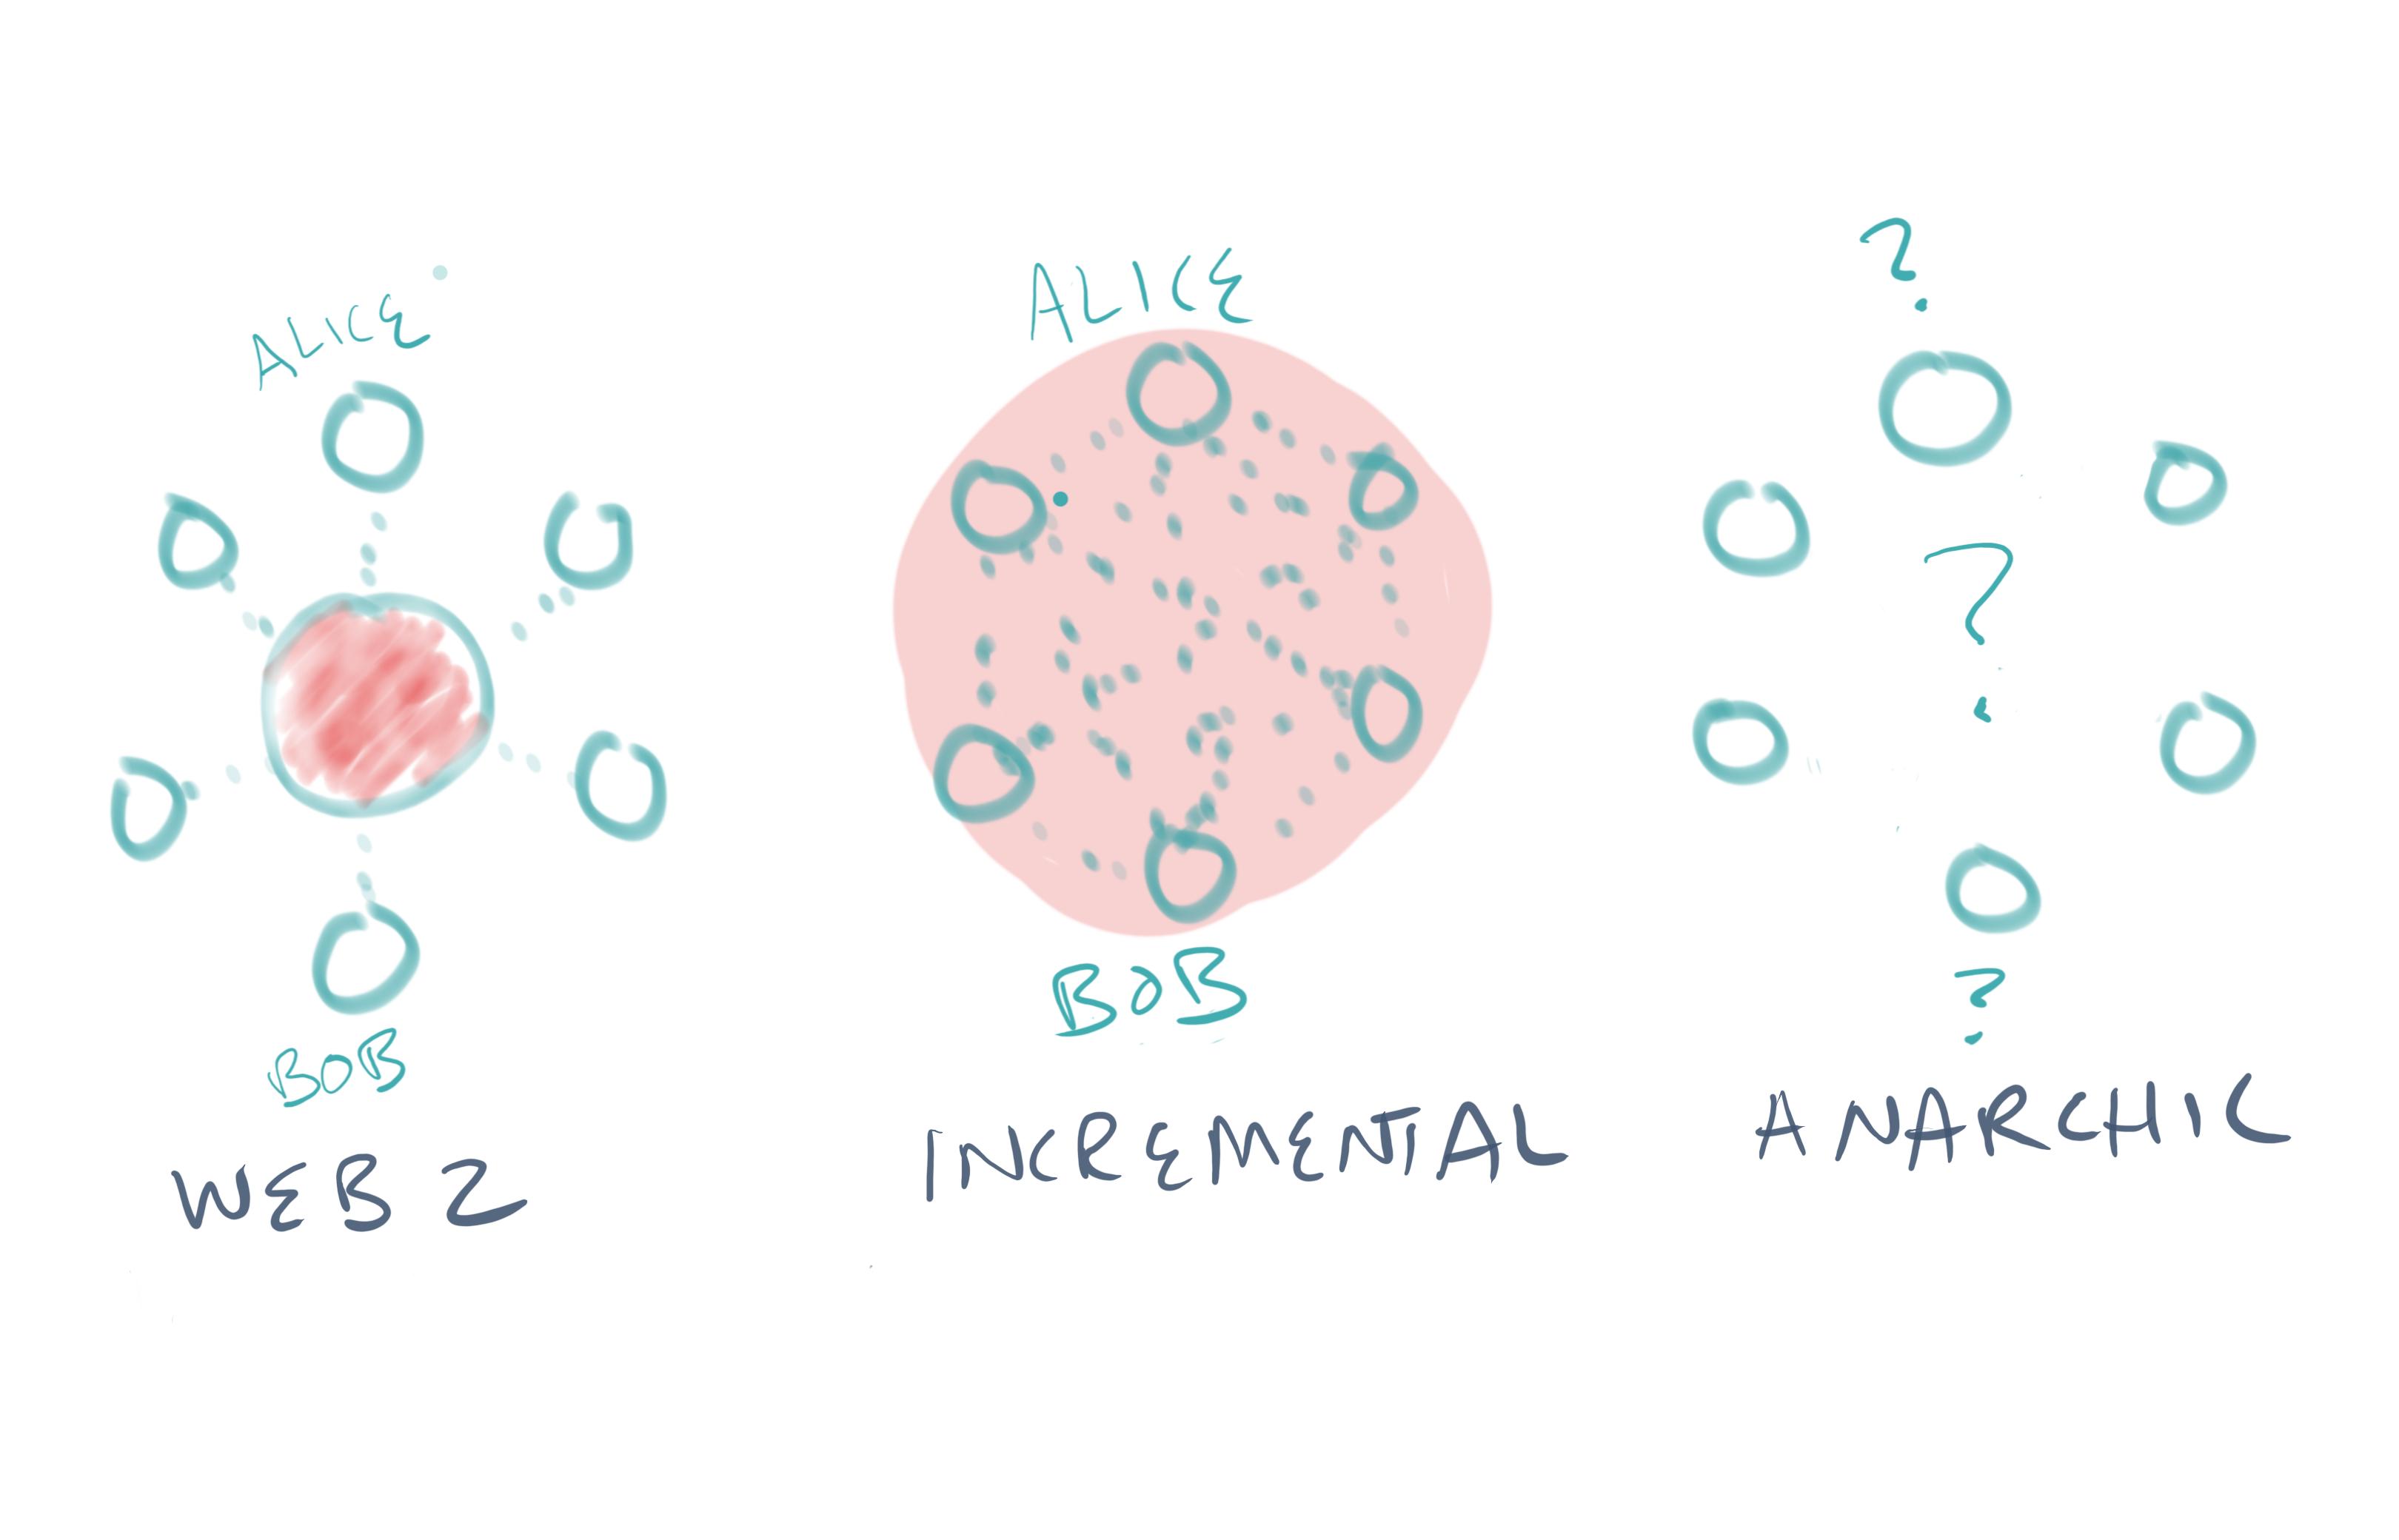 ALICE
BOB
WEB 2
ALICE
BOB
INCREMENTAL
?
?
?
ANARCHIC